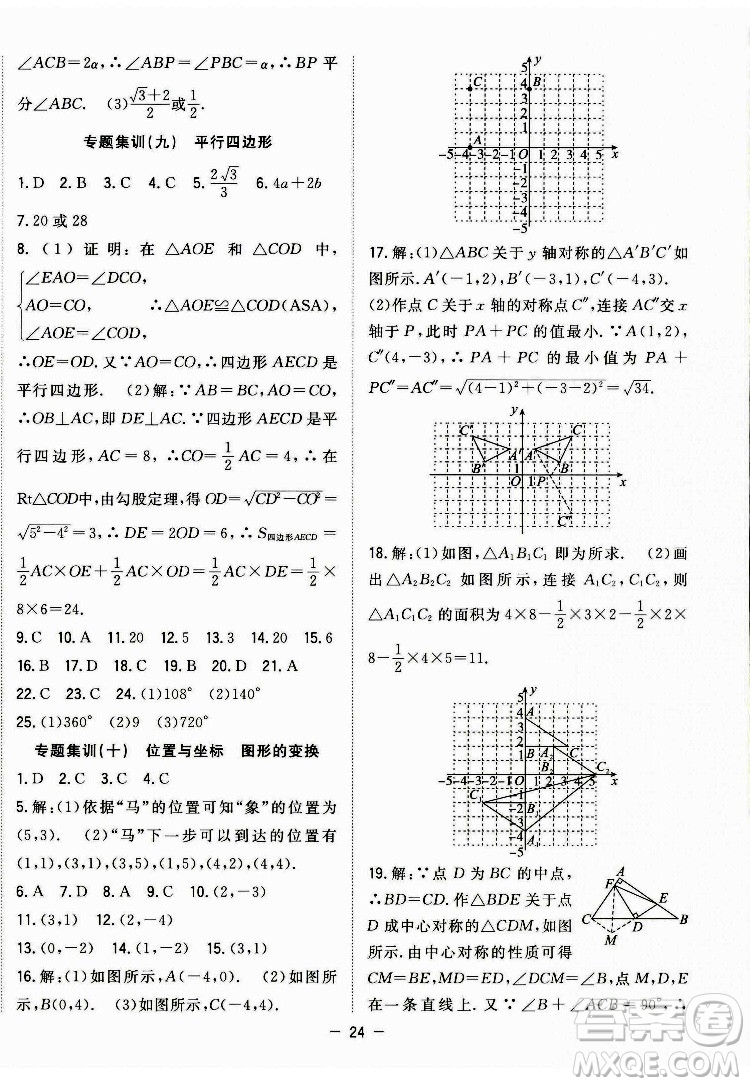 ∠ACB=2α,∴∠ABP=∠PBC=α,∴BP 平
分∠ABC. (3)(√3+2)/2或1/2.
专题集训(九) 平行四边形
1.D 2.B 3.C 4.C 5.2√3/3 6.4a+2b
7.20 或 28
8.(1)证明:在 △AOE 和 △COD 中,
∠EAO=∠DCO,
AO=CO, ∴△AOE≌△COD(ASA),
∠AOE=∠COD,
∴OE=OD.又∵AO=CO,∴四边形 AECD 是
平行四边形. (2)解:∵AB=BC,AO=CO,
∴OB⊥AC,即 DE⊥AC.∴四边形 AECD 是平
行四边形,AC=8,∴CO=1/2AC=4,∴在
Rt△COD中,由勾股定理,得 OD=√(CD²-CO²)=
√(5²-4²)=3,∴DE=2OD=6,∴S四边形AECD=
1/2AC×OE+1/2AC×OD=1/2AC×DE=1/2×
8×6=24.
9.C 10.A 11.20 12.5 13.3 14.20 15.6
16.B 17.D 18.C 19.D 20.B 21.A
22.C 23.C 24.(1)108° (2)108°
25.(1)360° (2)9 (3)720°
专题集训(十) 位置与坐标 图形的变换
1.D 2.C 3.C 4.C
5.解:(1)依据“马”的位置可知“象”的位置为
(5,3). (2)“马”下一步可以到达的位置有
(1,1),(3,1),(1,5),(4,2),(4,4).
6.A 7.D 8.A 9.D 10.(-1,3)
11.(3,1) 12.(2,-4)
13.(0,-2) 14.(2,-1) 15.(3,1)
16.解:(1)如图所示,A(-4,0). (2)如图所
示,B(0,4). (3)如图所示,C(-4,4).
y
5
4
3
2
1
C B
A
-5-4-3-2-1 O 1 2 3 4 5 x
-1
-2
-3
-4
-5
17.解:(1)△ABC 关于 y 轴对称的△A′B′C′如
图所示.A′(-1,2),B′(-3,1),C′(-4,3).
(2)作点 C 关于 x 轴的对称点 C″,连接 AC″交 x
轴于 P,此时 PA+PC 的值最小.∵A(1,2),
C″(4,-3),∴PA+PC 的最小值为 PA+
PC″=AC″=√((4-1)²+(-3-2)²)=√34.
y
C′ C
A′ A
B′ B
O 1 P x
C″
18.解:(1)如图,△A₁B₁C₁ 即为所求. (2)画
出△A₂B₂C₂ 如图所示,连接 A₁C₂,C₁C₂,则
△A₁C₁C₂ 的面积为 4×8-1/2×3×2-1/2×2×
8-1/2×4×5=11.
y
5
4 A
3
2
1 B A₂ C
B₂ C₂
-5-4-3-2-1 O 1 2 3 4 5 x
-1
C₁ -2 B₁
-3
-4 A₁
-5
19.解:∵点 D 为 BC 的中点,
∴BD=CD.作△BDE关于点
D 成中心对称的△CDM,如图
所示.由中心对称的性质可得
CM=BE,MD=ED,∠DCM=∠B.∵M,D,E
在一条直线上.又∵∠B+∠ACB=90°,∴
A
F
E
C D B
M
— 24 —
答案圈
MXQE.COM